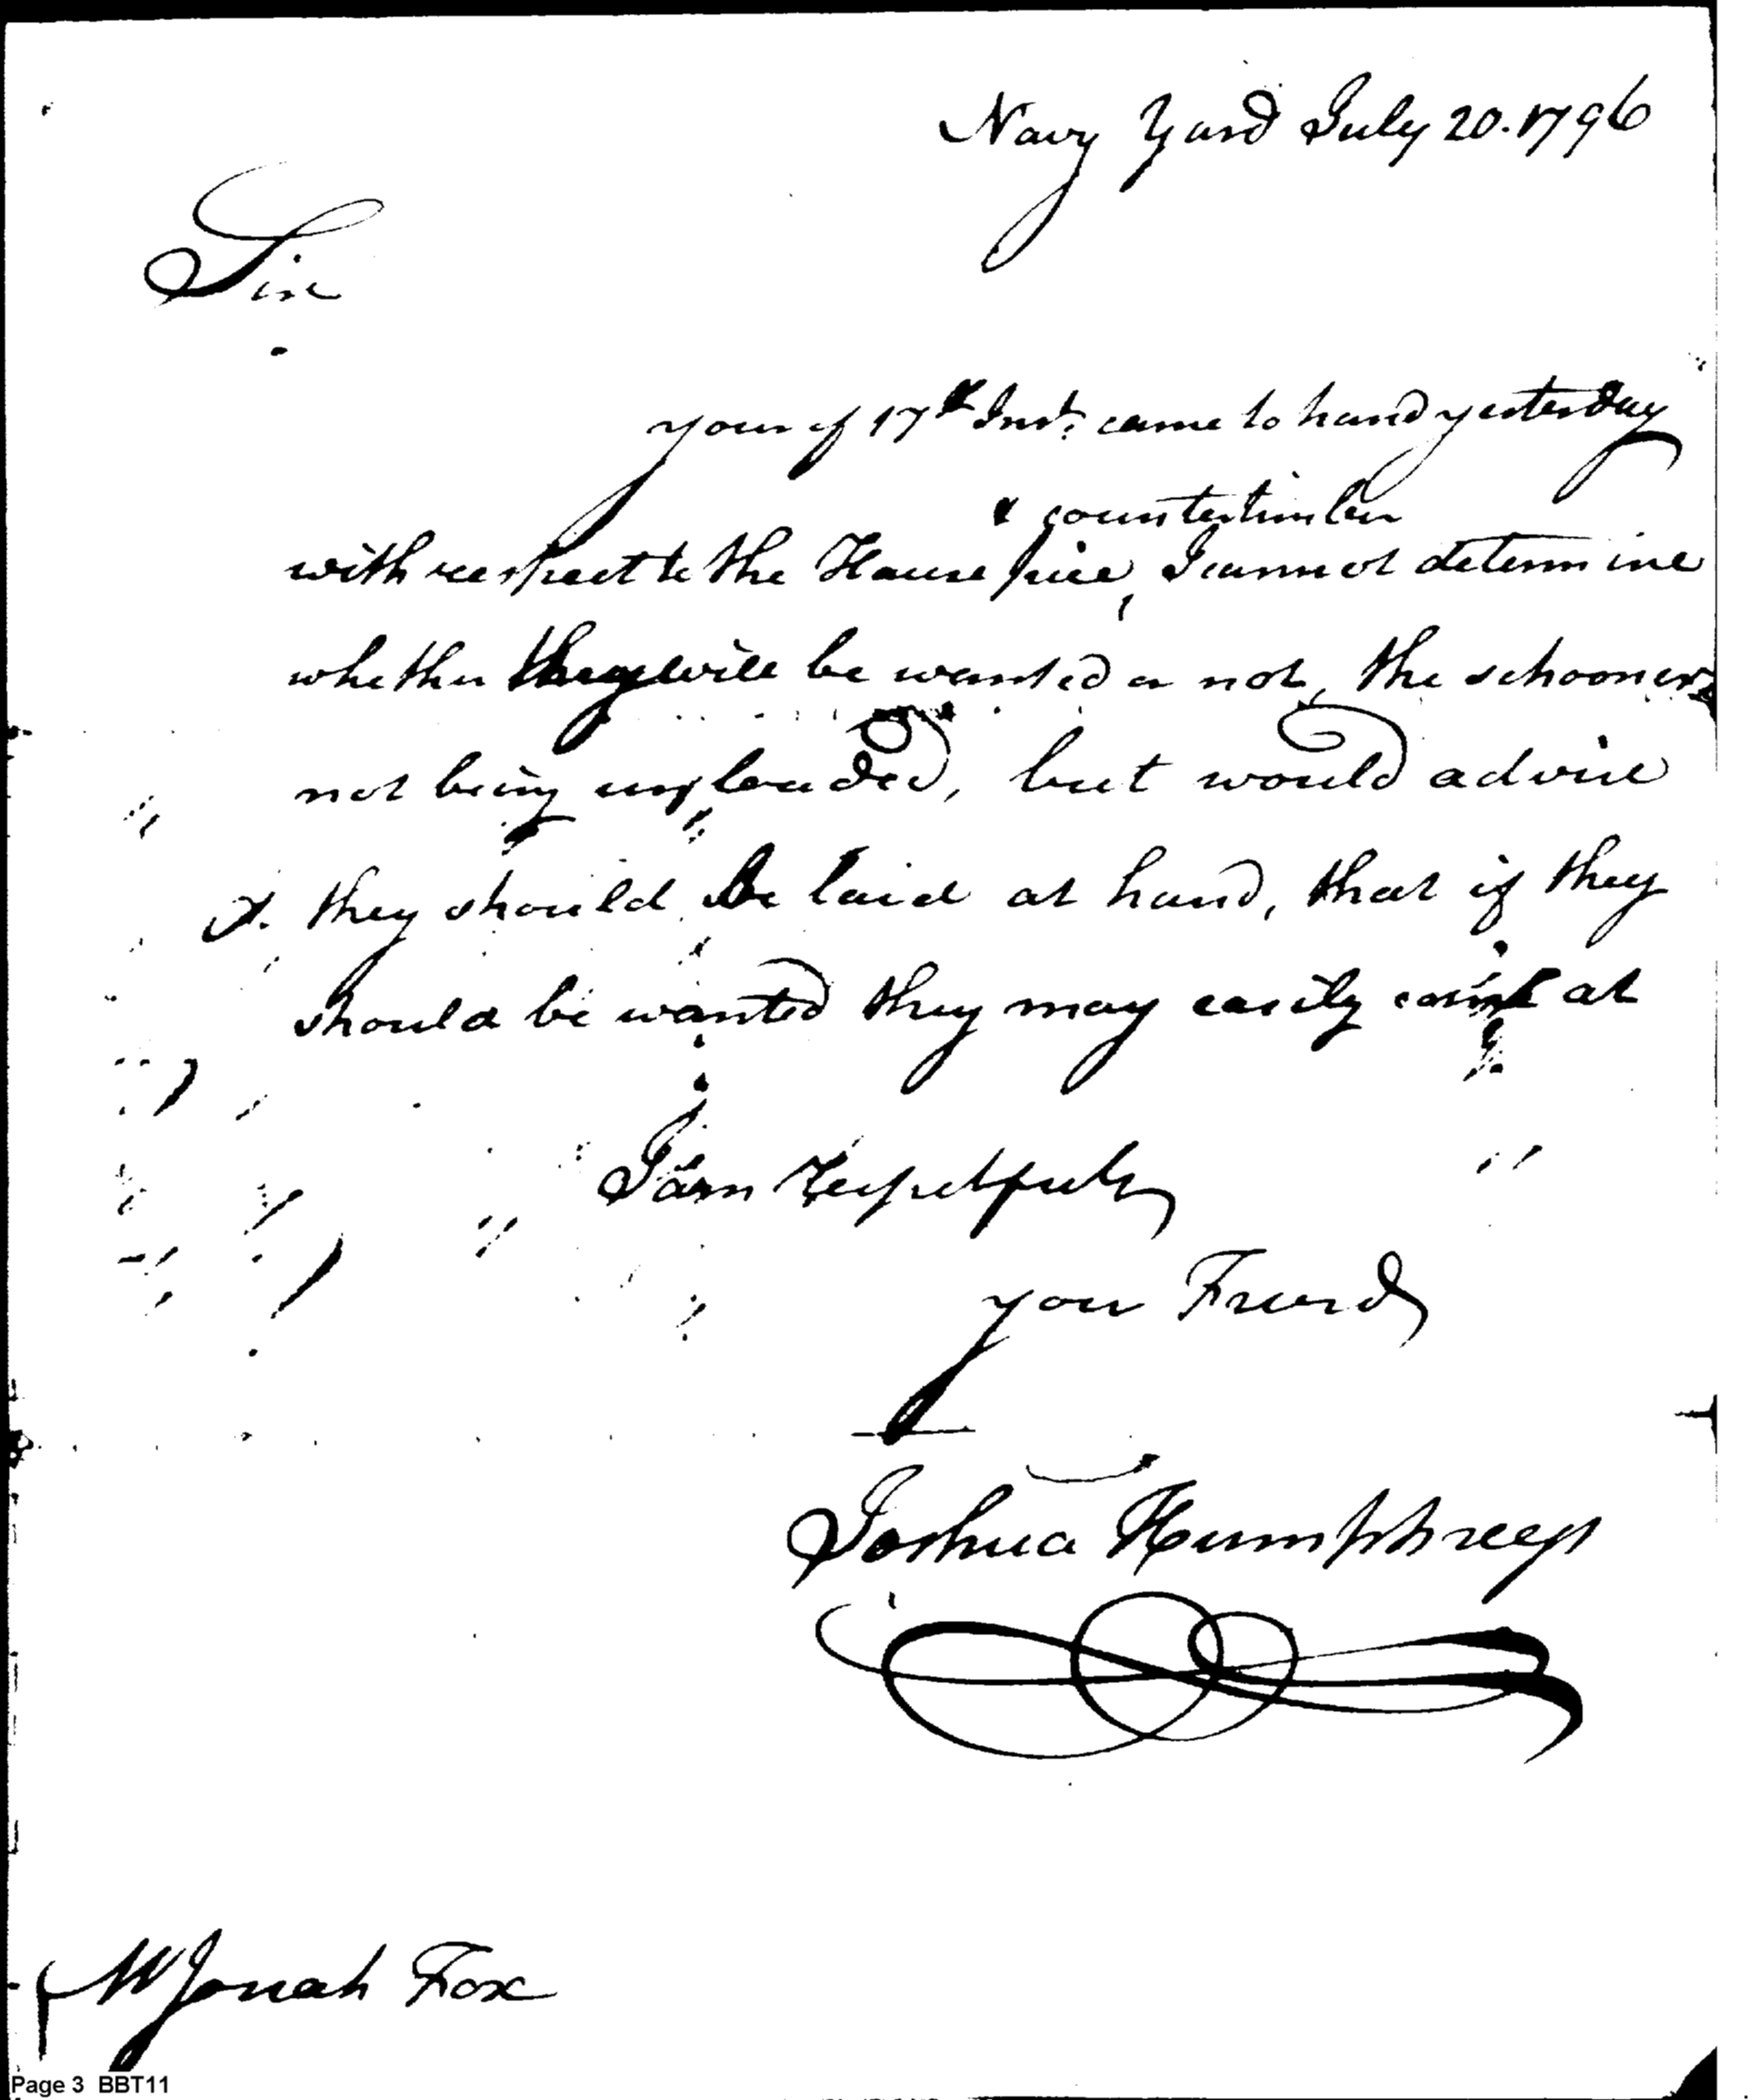 Navy Yard July 20. 1796
Sir
your of 17th Inst. came to hand yesterday
& countertimber
with respect to the Hause piece, I cannot determine
whether they will be wanted or not, the schooners
not being unloaded, but would advise
they should be laid at hand, that if they
should be wanted they may easily come at
I am Respectfuly
your Friend
Joshua Humphreys
Mr Jonah Fox
Page 3 BBT11